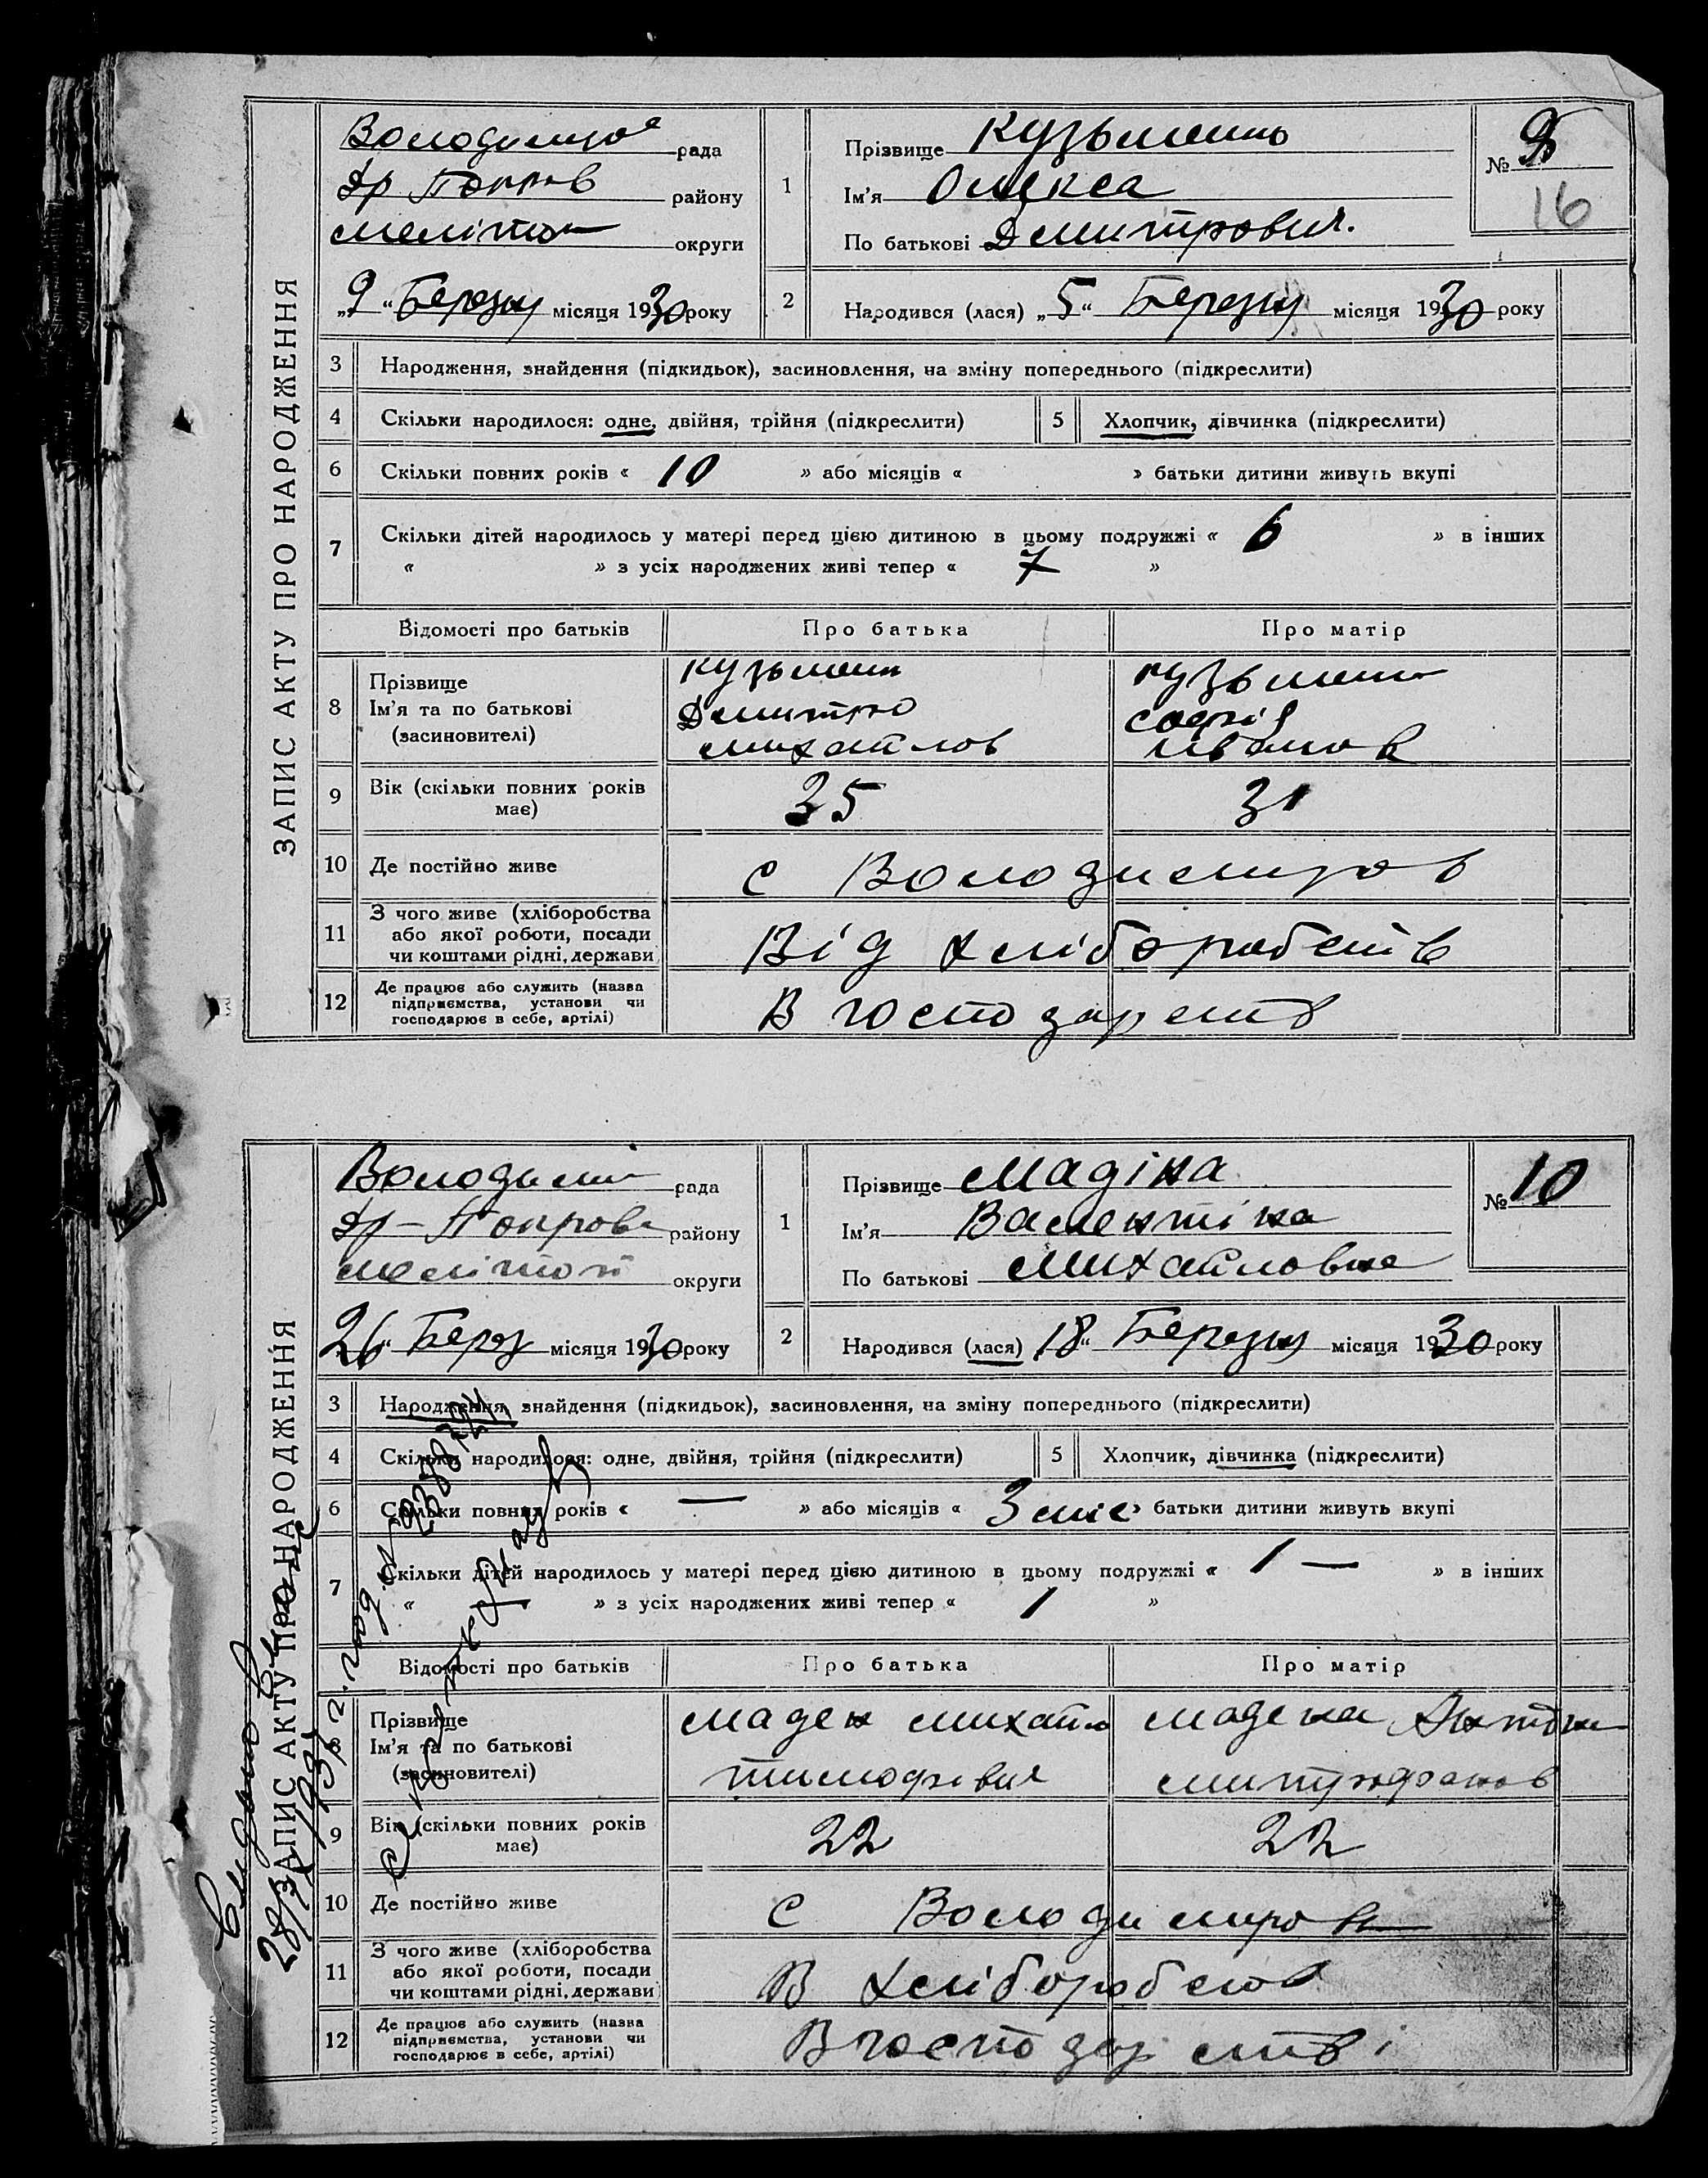 ЗАПИС АКТУ ПРО НАРОДЖЕННЯ
рада
району
Меліто округи
„9“ Березня місяця 1930 року
1
Прізвище Кузьменко
Ім'я Олекса
По батькові Дмитрович.
№ 9
16
2
Народився (лася) „5“ Березня місяця 1930 року
3 Народження, знайдення (підкидьок), засиновлення, на зміну попереднього (підкреслити)
4 Скільки народилося: одне, двійня, трійня (підкреслити) 5 Хлопчик, дівчинка (підкреслити)
6 Скільки повних років « 10 » або місяців « » батьки дитини живуть вкупі
7 Скільки дітей народилось у матері перед цією дитиною в цьому подружжі « 6 » в інших
« » з усіх народжених живі тепер « 7 »
Відомості про батьків Про батька Про матір
8 Прізвище
Ім'я та по батькові
(засиновителі)
Кузьменк
Дмитро
Михайлов
Кузьменк
Софія
Іванов
9 Вік (скільки повних років має) 35 31
10 Де постійно живе с Володимиров
11 З чого живе (хліборобства
або якої роботи, посади
чи коштами рідні, держави
Від хліборобств
12 Де працює або служить (назва
підприємства, установи чи
господарює в себе, артілі)
В господарств
ЗАПИС АКТУ ПРО НАРОДЖЕННЯ
Володими рада
Др-Покров району
Мелітоп округи
26“ Берез місяця 1930 року
1
Прізвище Мадіка
Ім'я Валентіна
По батькові Михайловна
№ 10
2
Народився (лася) 18“ Березня місяця 1930 року
3 Народження, знайдення (підкидьок), засиновлення, на зміну попереднього (підкреслити)
4 Скільки народилося: одне, двійня, трійня (підкреслити) 5 Хлопчик, дівчинка (підкреслити)
6 Скільки повних років « — » або місяців « 3 міс » батьки дитини живуть вкупі
7 Скільки дітей народилось у матері перед цією дитиною в цьому подружжі « 1 — » в інших
« » з усіх народжених живі тепер « 1 »
Відомості про батьків Про батька Про матір
8 Прізвище
Ім'я та по батькові
(засиновителі)
Мадек Михайло
Тимофієвич
Мадека
Митрофанов
9 Вік (скільки повних років має) 22 22
10 Де постійно живе с Володимиров
11 З чого живе (хліборобства
або якої роботи, посади
чи коштами рідні, держави
В хліборобств
12 Де працює або служить (назва
підприємства, установи чи
господарює в себе, артілі)
В господарстві